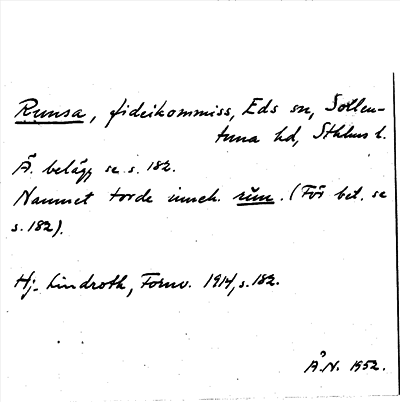 Runsa, fideikommiss, Eds sn, Sollen-
tuna hd, Sthlms l.
Ä. belägg se s. 182.
Namnet torde inneh. rūn. (För bet. se
s. 182).
Hj. Lindroth, Fornv. 1914, s. 182.
Å. N. 1952.